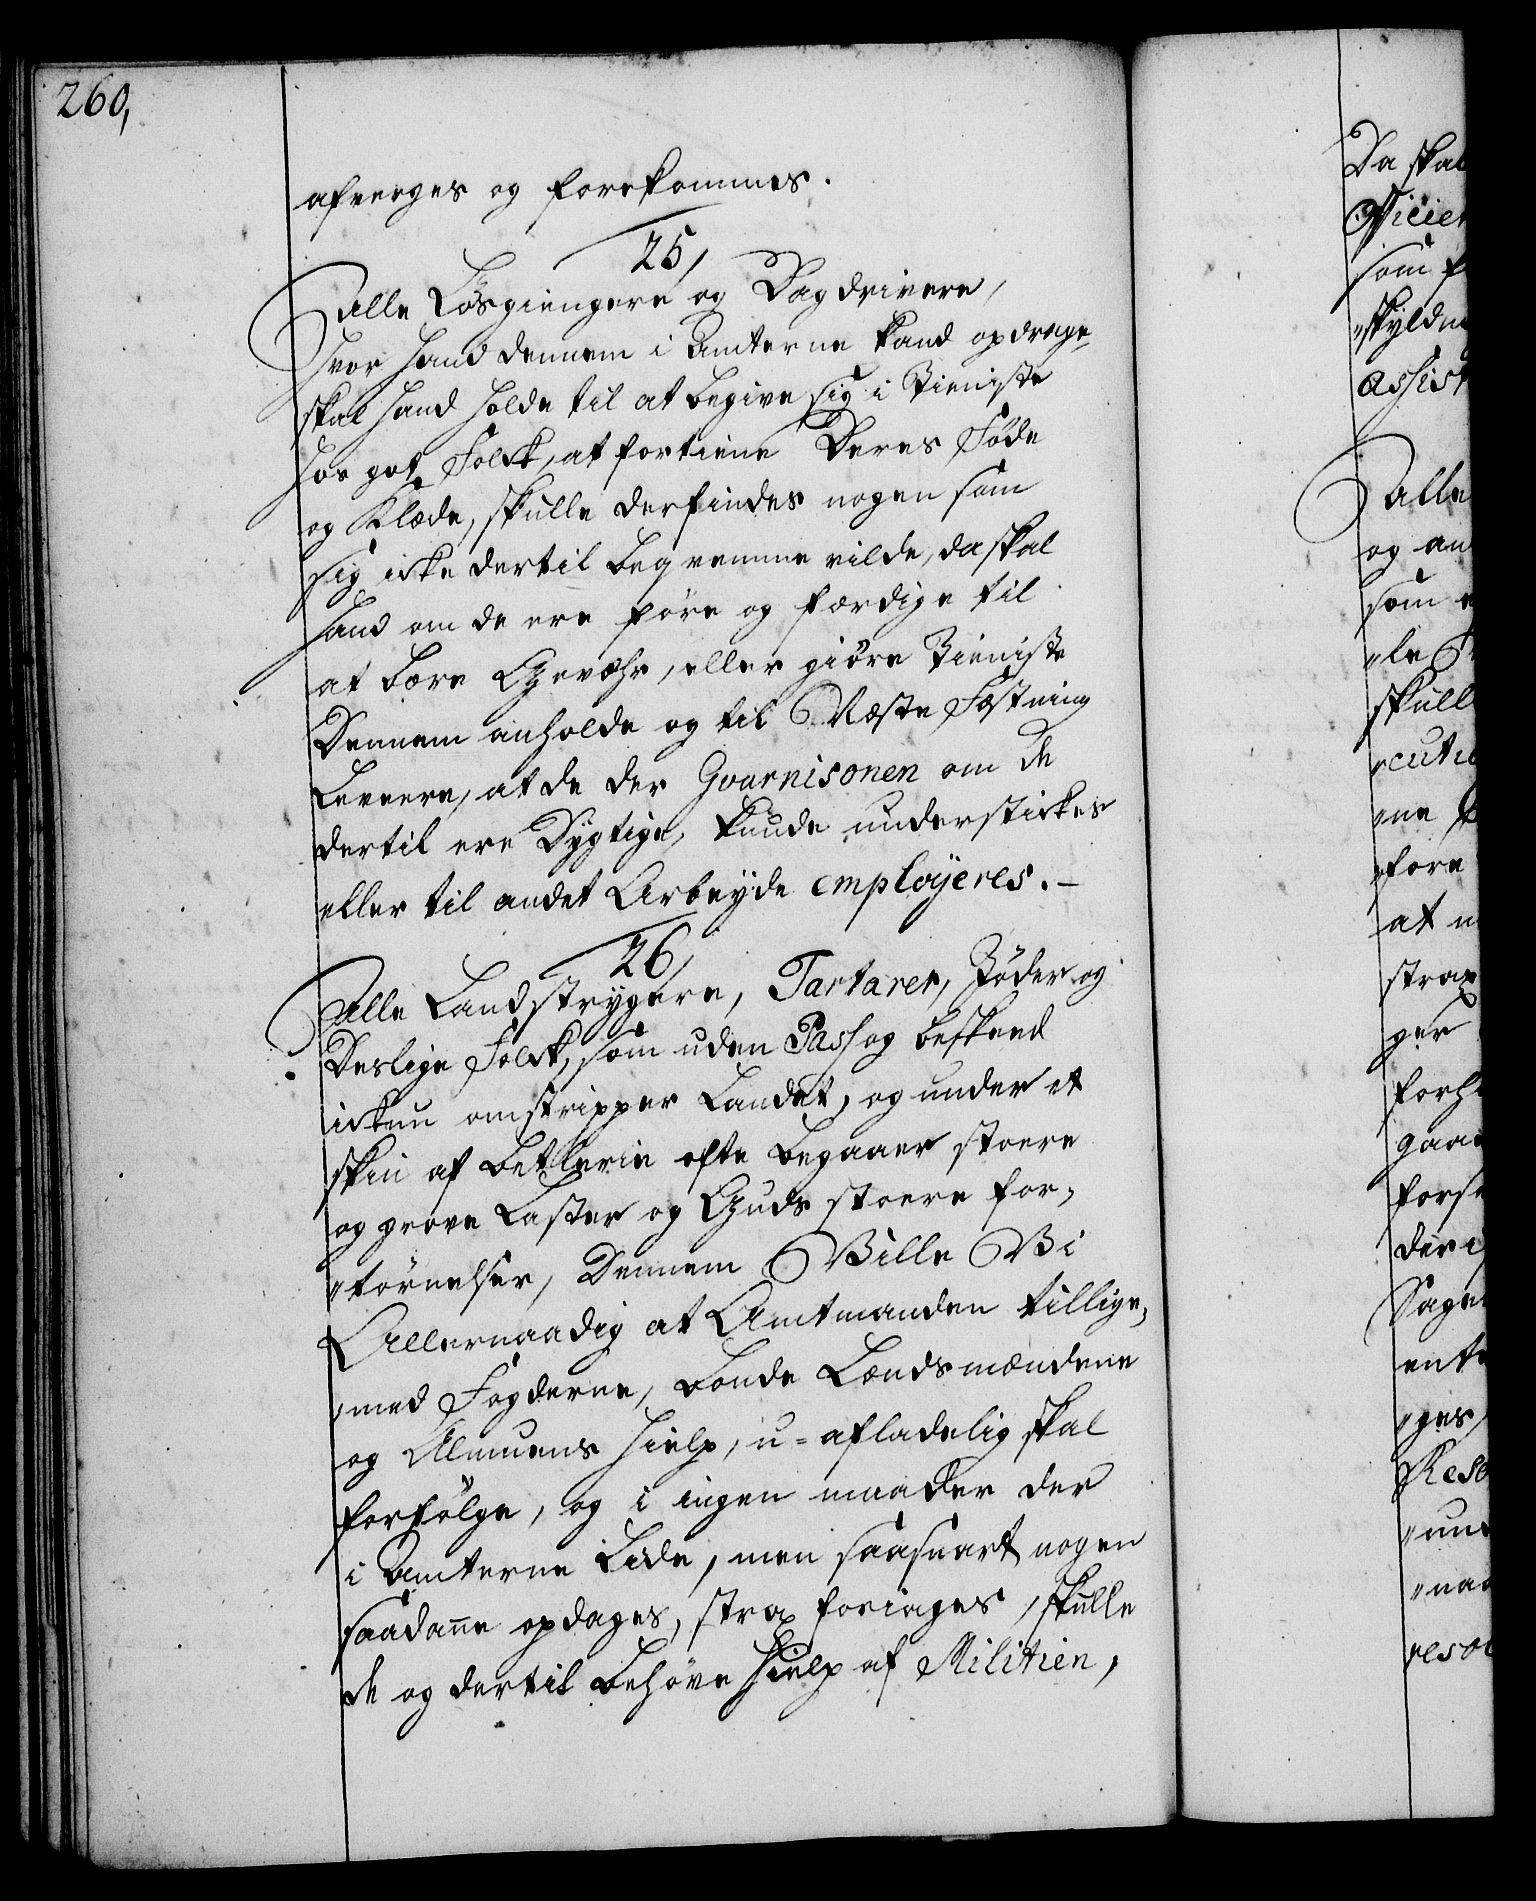 260,
afverges og forekommes.
25,
Alle Løsgiengere og Dagdrivere,
hvor hand dennem i Amterne kand opdrage,
skal hand holde til at begive sig i Tieniste
hos got Folck, at fortiene Deres Føde
og Klæde, skulle derfindes nogen som
sig icke dertil beqvemme vilde, da skal
hand om de ere føre og færdige til
at bære Gevæhr, eller giöre Tieniste
Dennem anholde og til Næste Fæstning
Levere, at de der Gvarnisonen om de
dertil ere Dygtige, kunde understickes
eller til andet Arbeyde employeres. –
26,
Alle Landstrygere, Tartarer, Jøder og
Deslige Folck, som uden Pass og beskeed
ickun omstripper Landet, og under et
skin af betlerie ofte begaaer stoere
og grove Laster og Guds stoere for-
"tørnelser, Dennem Ville Vi
Allernaadig at Amtmanden tillige,
"med Fogderne, Bonde Lændsmændene
og Almuens hielp, u-afladelig skal
forfølge, og i ingen maader der
i Amterne Lide, men saasnart nogen
saadanne opdages, strax foriages, skulle
de og dertil behøve hielp af Militien,
Da skal
Officier
som f
"skyldn
Assist
Alle
og an
som e
"le
skull
"cutio
"ne
"fore
at n
strax
ger
forh
gaa
forse
deri
Sage
ent
"ges,
Reso
"un
"naa
resol